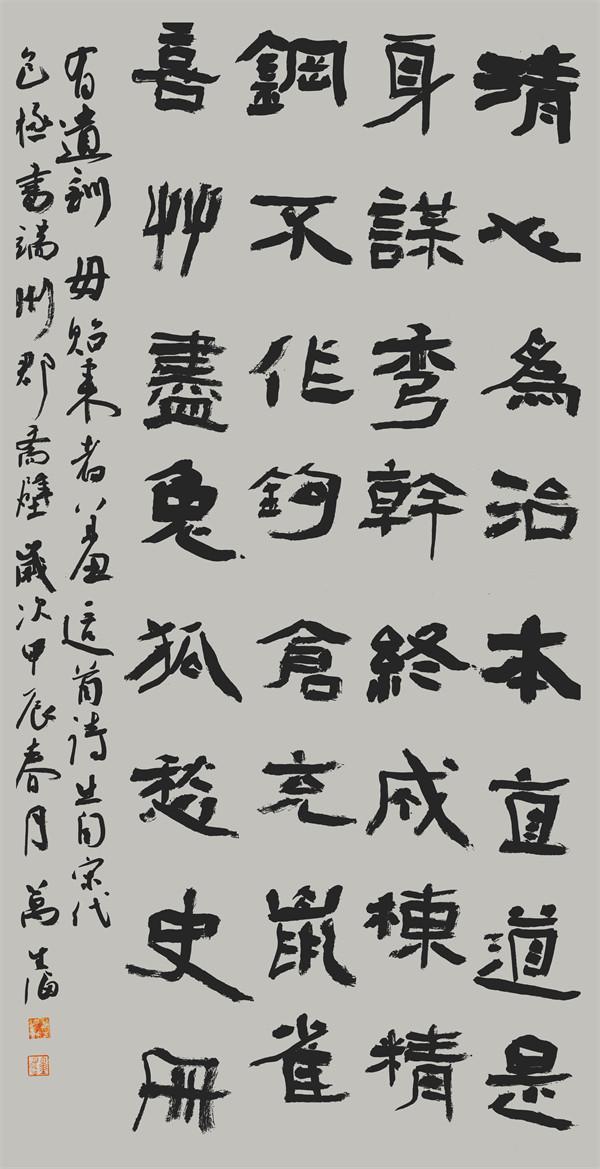 清心為治本直道是
身謀秀幹終成棟精
鋼不作鉤倉充鼠雀
喜艸盡兔狐愁史冊
有遺訓毋貽來者羞這首詩出自宋代
包拯書端州郡齋壁歲次甲辰春月萬生